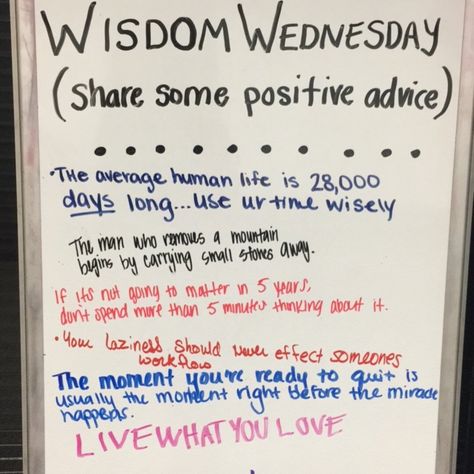 WISDOM WEDNESDAY
(share some positive advice)
• • • • • • • • • • •
• THE average human life is 28,000
days long...use ur time wisely
The man who removes a mountain
begins by carrying small stones away.
If its not going to matter in 5 years,
don't spend more than 5 minutes thinking about it.
• Your laziness should never effect someones
workflow
The moment you're ready to quit is
usually the moment right before the miracle
happens.
LIVE WHAT YOU LOVE